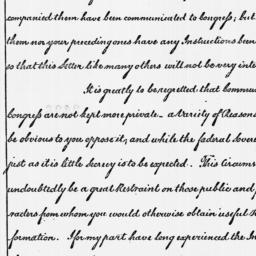 companied them have been communicated to Congress; but
them nor your preceding ones have any Instructions been
so that this Letter like many others will not be very inte
It is greatly to be regretted that Commun
Congress are not kept more private – a variety of Reasons
be obvious to you oppose it, and while the fœderal Sover
just as it is little Secrecy is to be expected. This Circums
undoubtedly be a great Restraint on those public and p
raders from whom you would otherwise obtain useful
formation. I for my part have long experienced the In